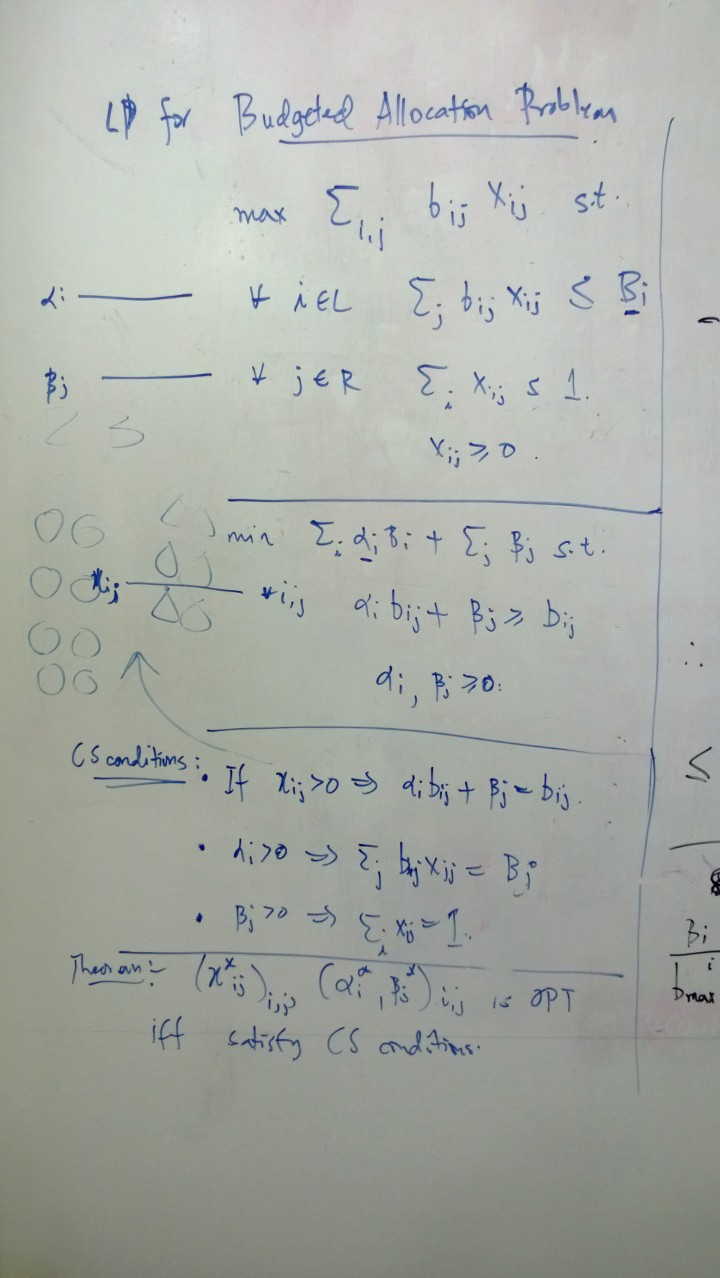 LP for Budgeted Allocation Problem
max Σ_{i,j} b_{ij} x_{ij} s.t.
α_i ——— ∀ i ∈ L Σ_j b_{ij} x_{ij} ≤ B_i
β_j ——— ∀ j ∈ R Σ_i x_{ij} ≤ 1.
x_{ij} ≥ 0.
min Σ_i α_i B_i + Σ_j β_j s.t.
x_{ij} ——— ∀ i,j α_i b_{ij} + β_j ≥ b_{ij}
α_i, β_j ≥ 0.
CS conditions: • If x_{ij} > 0 ⇒ α_i b_{ij} + β_j = b_{ij}.
• α_i > 0 ⇒ Σ_j b_{ij} x_{ij} = B_i
• β_j > 0 ⇒ Σ_i x_{ij} = 1.
Theorem:- (x*_{ij})_{i,j}, (α_i*, β_j*)_{i,j} is OPT
iff satisfy CS conditions.
∴
≤
B_i
b^i_{max}